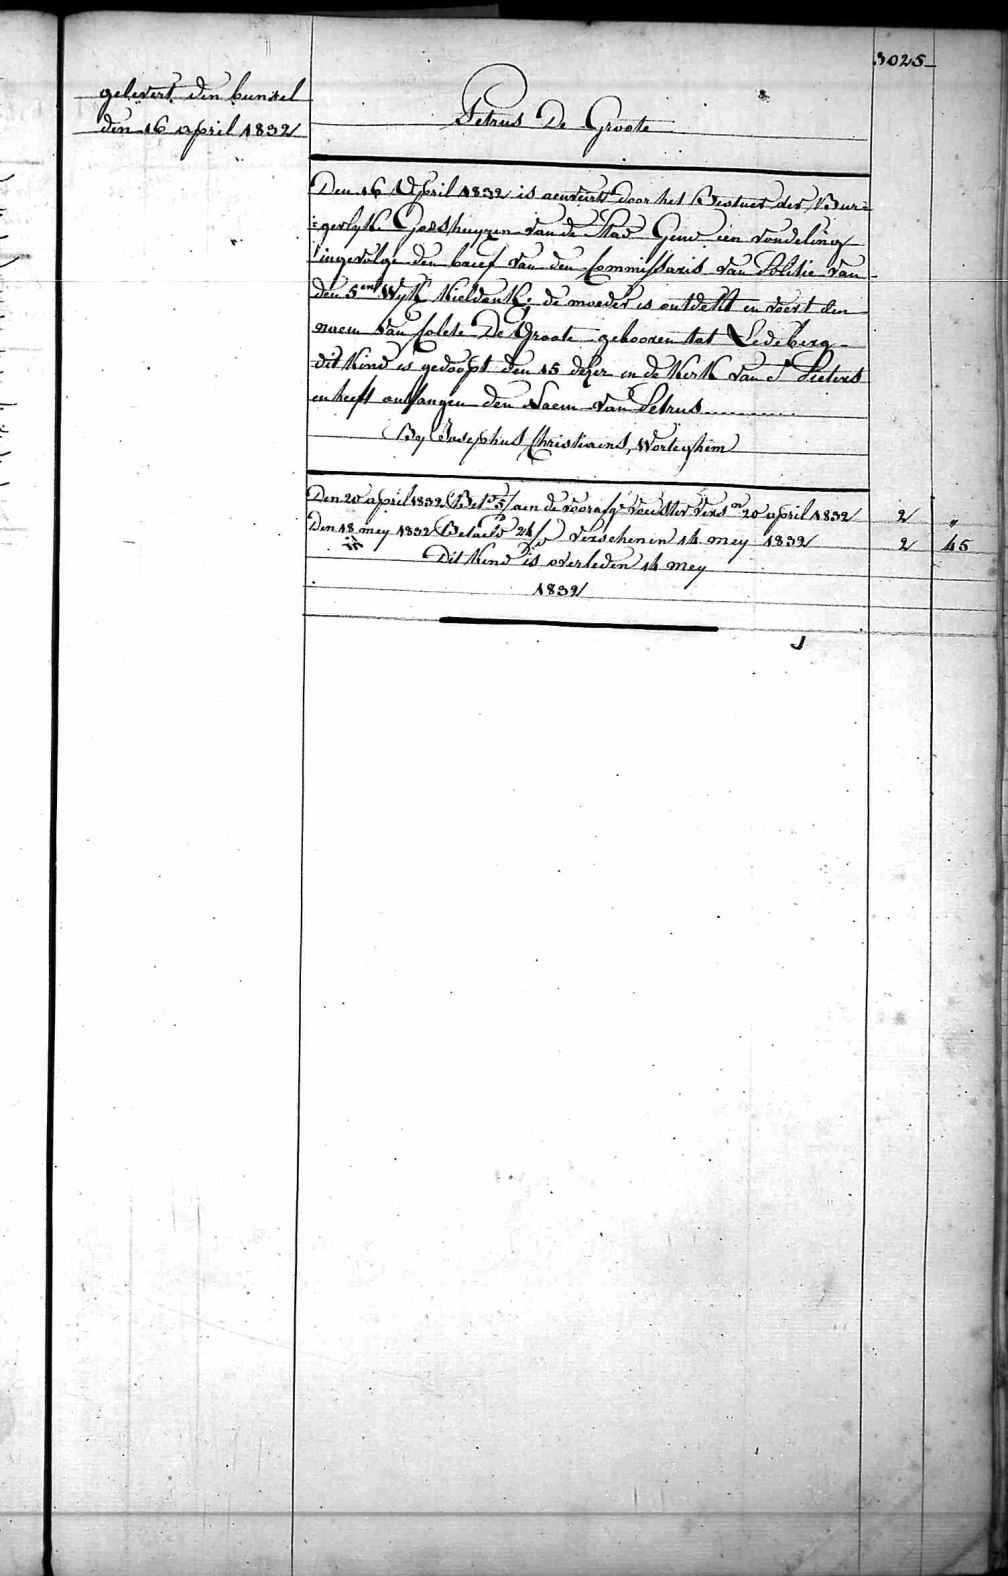 3025
gelevert den bunsel
den 16 april 1832
Petrus De Groote
Den 16 April 1832 is aenveirt door het Bestuer der Bur=
=gerlyke Godshuyzen van de Stad Gend een vondeling
ingevolge den brief van den Commissaris van Politie van
den 5en Wyk Meldende: de moeder is ontdekt en voert den
naem van Colete De Groote gebooren tot Ledeberg
dit Kind is gedoopt den 15 dezer in de Kerk van St Pieters
en heeft ontfangen den Naem van Petrus
By Josephus Christiaens, Worteghem
Den 20 april 1832 Bet 5/ aen de voorafge voedster vers en 20 april 1832 2 "
Den 18 mey 1832 Betaeld 24/ verschenen 14 mey 1832 2 45
Dit Kind is overleden 14 mey
1832